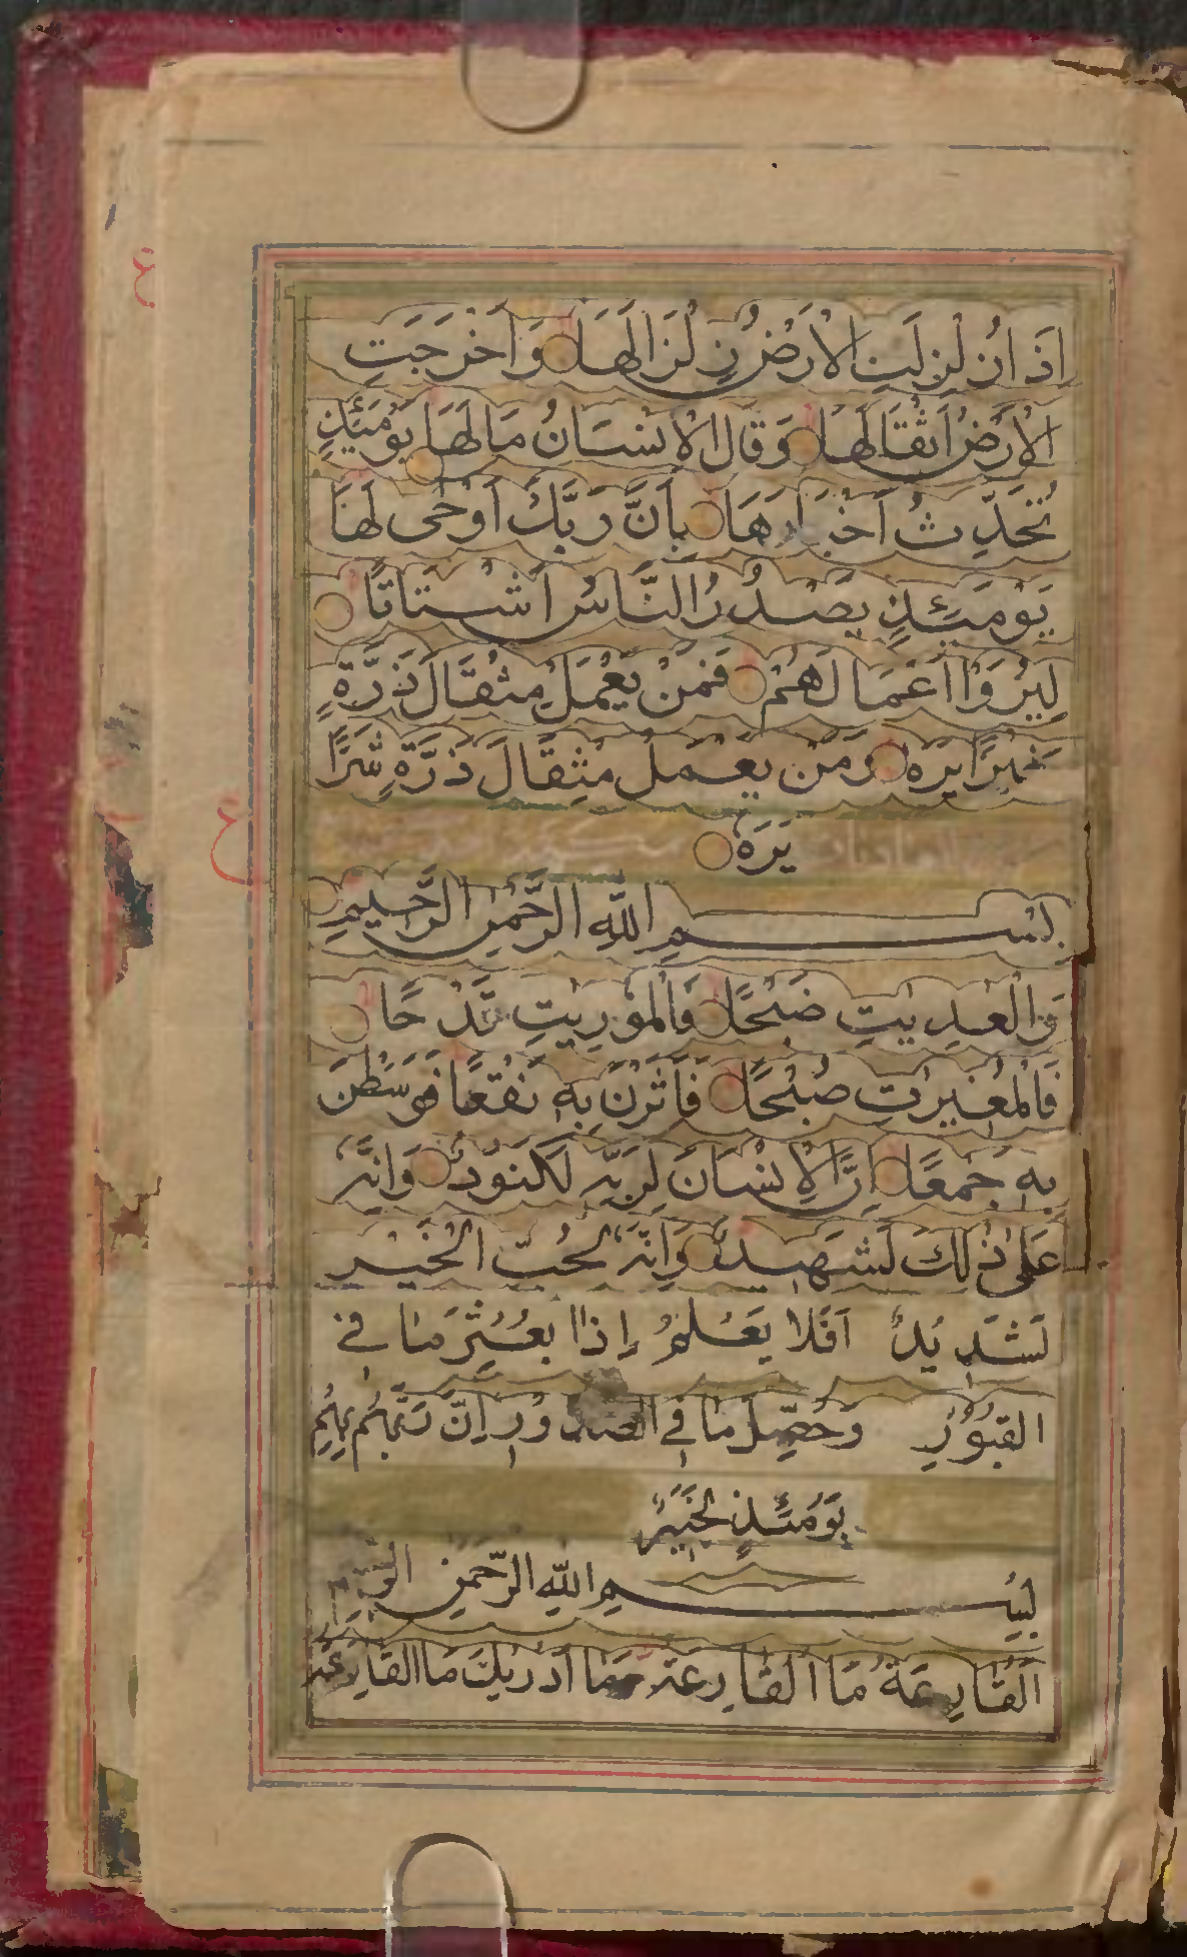 اِذَا زُلْزِلَتِ الْاَرْضُ زِلْزَالَهَا وَاَخْرَجَتِ
الْاَرْضُ اَثْقَالَهَا وَقَالَ الْاِنْسَانُ مَا لَهَا يَوْمَئِذٍ
تُحَدِّثُ اَخْبَارَهَا بِاَنَّ رَبَّكَ اَوْحٰى لَهَا
يَوْمَئِذٍ يَصْدُرُ النَّاسُ اَشْتَاتًا
لِيُرَوْا اَعْمَالَهُمْ فَمَنْ يَعْمَلْ مِثْقَالَ ذَرَّةٍ
خَيْرًا يَرَهُ وَمَنْ يَعْمَلْ مِثْقَالَ ذَرَّةٍ شَرًّا
يَرَهُ
بِسْمِ اللّٰهِ الرَّحْمٰنِ الرَّحِيمِ
وَالْعٰدِيٰتِ ضَبْحًا فَالْمُوْرِيٰتِ قَدْحًا
فَالْمُغِيْرٰتِ صُبْحًا فَاَثَرْنَ بِهٖ نَقْعًا فَوَسَطْنَ
بِهٖ جَمْعًا اِنَّ الْاِنْسَانَ لِرَبِّهٖ لَكَنُوْدٌ وَاِنَّهٗ
عَلٰى ذٰلِكَ لَشَهِيْدٌ وَاِنَّهٗ لِحُبِّ الْخَيْرِ
لَشَدِيْدٌ اَفَلَا يَعْلَمُ اِذَا بُعْثِرَ مَا فِي
الْقُبُوْرِ وَحُصِّلَ مَا فِي الصُّدُوْرِ اِنَّ رَبَّهُمْ بِهِمْ
يَوْمَئِذٍ لَخَبِيْرٌ
بِسْمِ اللّٰهِ الرَّحْمٰنِ
اَلْقَارِعَةُ مَا الْقَارِعَةُ وَمَا اَدْرٰىكَ مَا الْقَارِعَةُ
ع
ع